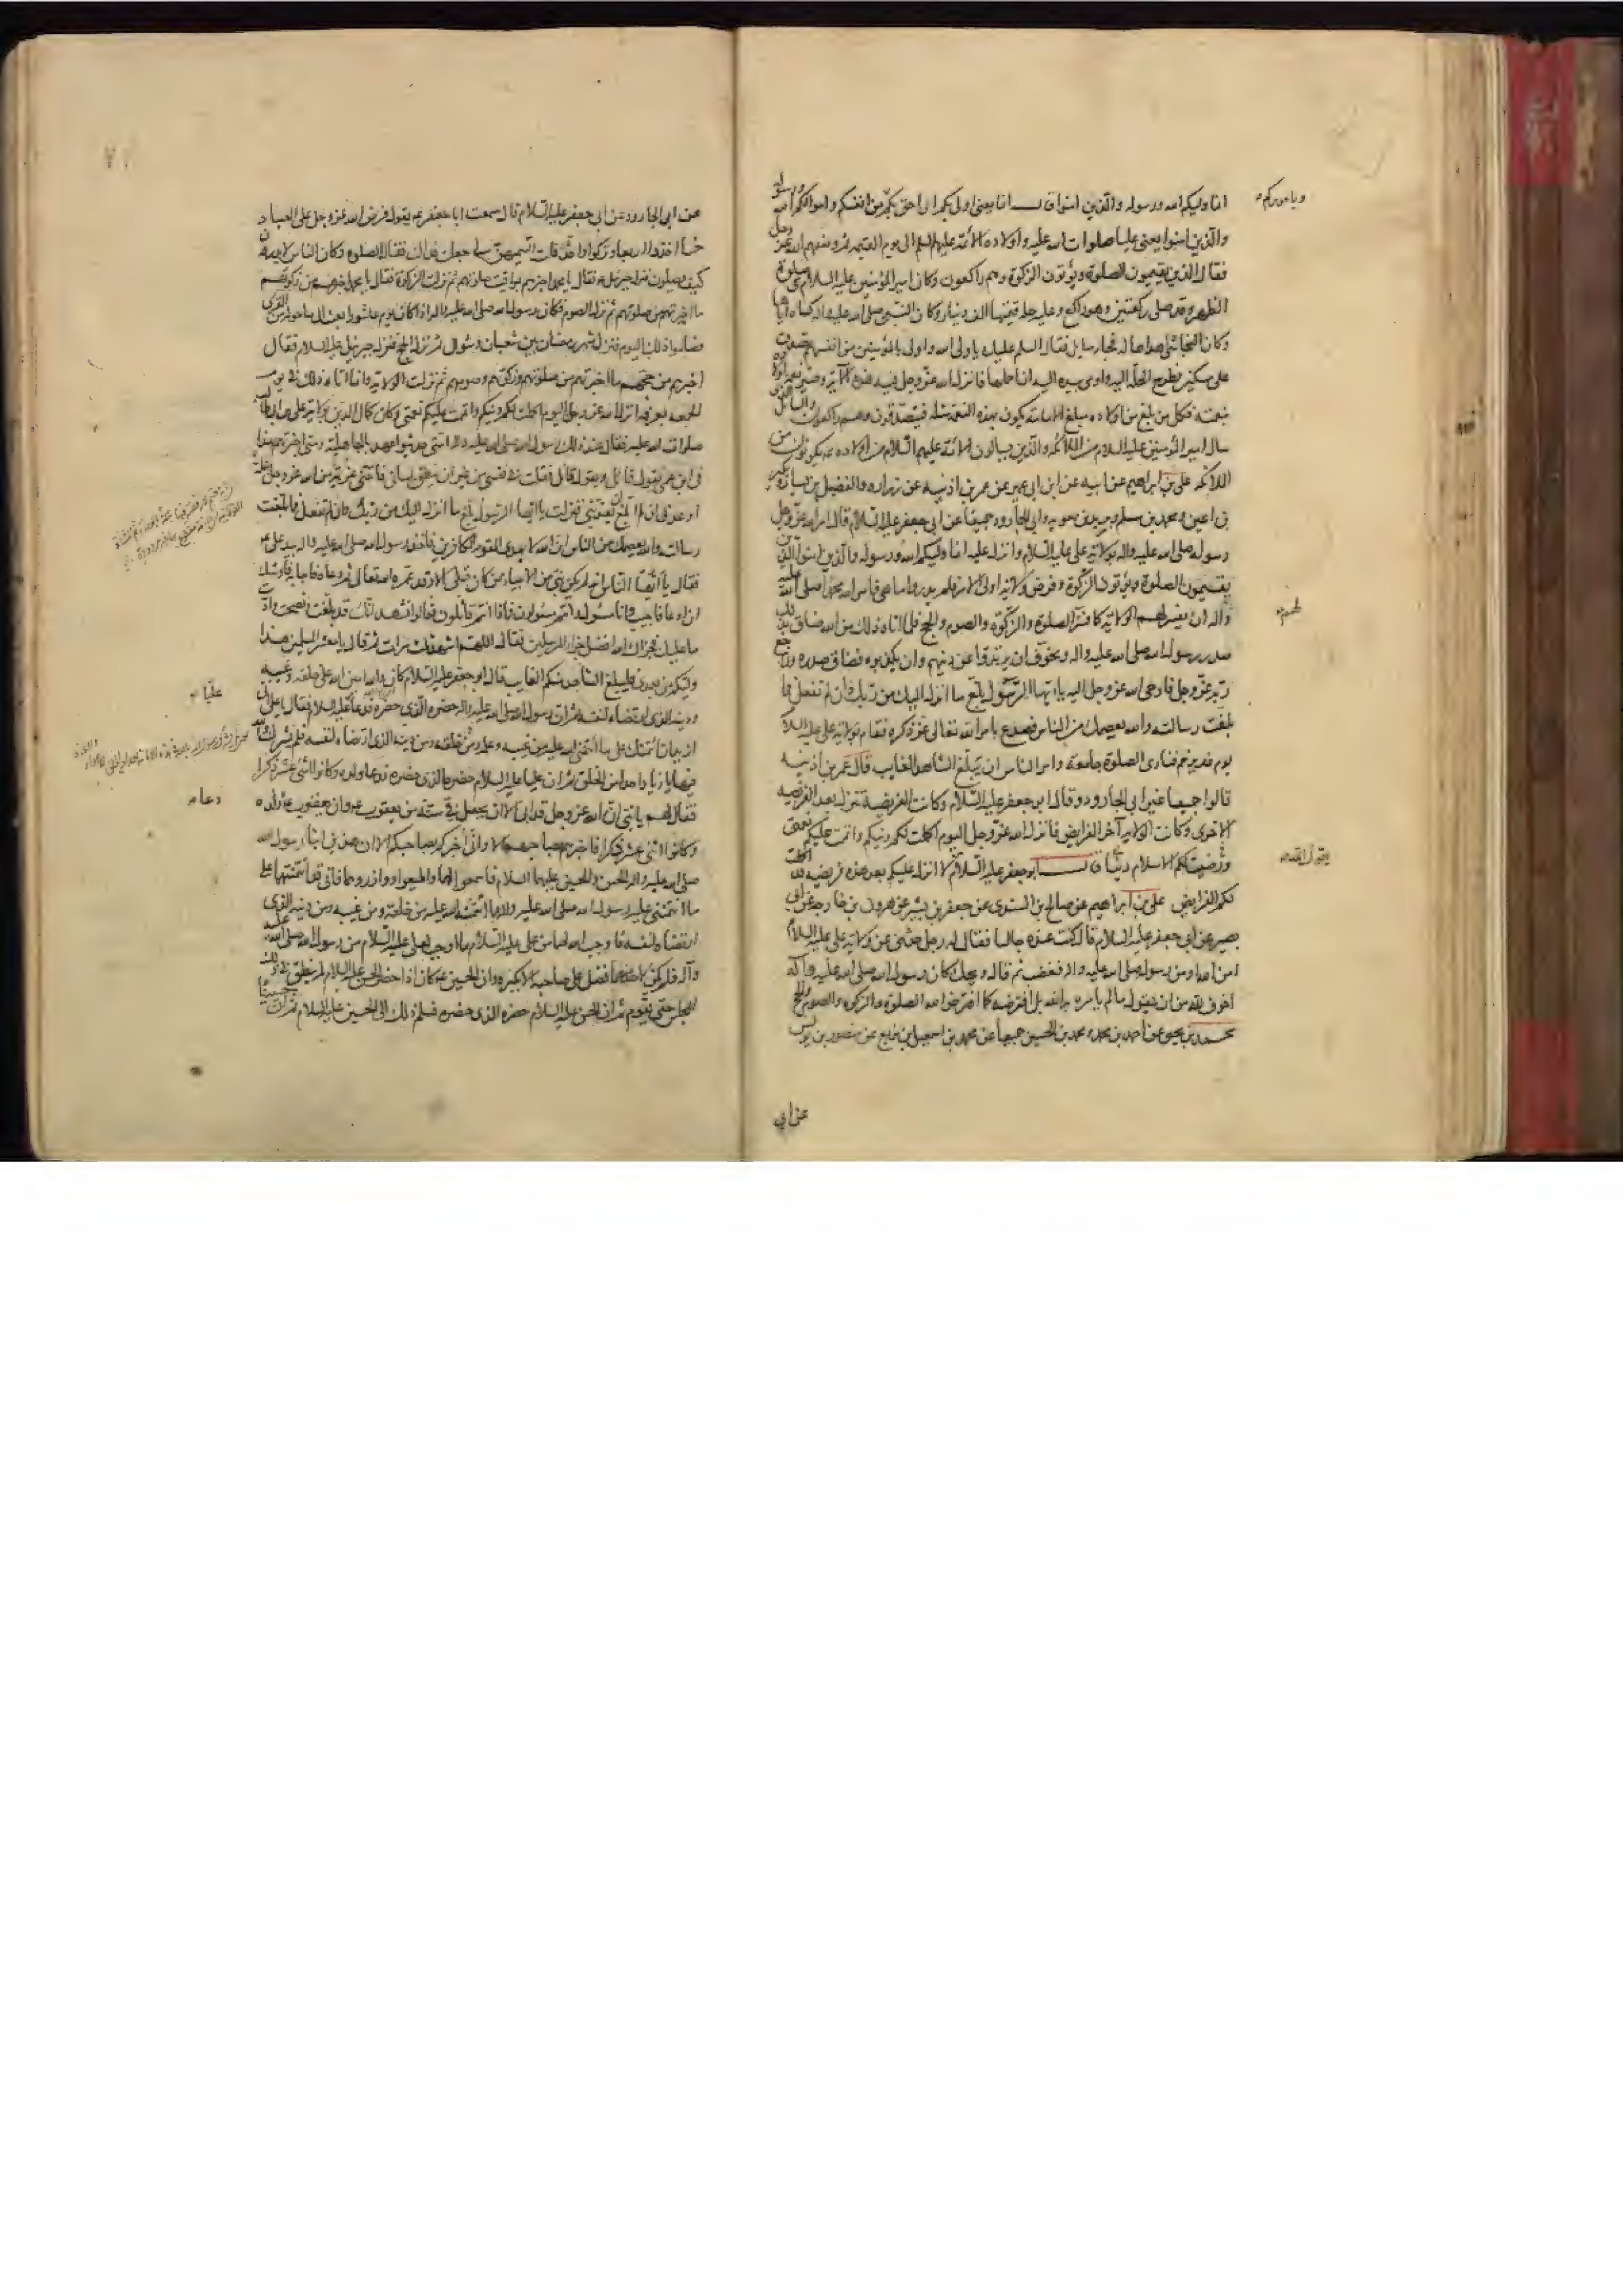 انما وليكم الله ورسوله والذين امنوا قال انما يعنى اولى بكم اى احق بكم من انفسكم واموالكم الله ورسوله
وباموركم
والذين امنوا يعنى عليا صلوات الله عليه واولاده الائمة عليهم السلم الى يوم القيمة ثم وصفهم الله عز وجل
فقال الذين يقيمون الصلوة ويؤتون الزكوة وهم راكعون وكان امير المؤمنين عليه السلام فى صلوة
الظهر وقد صلى ركعتين وهو راكع وعليه حلة قيمتها الف دينار وكان النبى صلى الله عليه واله كساه اياها
وكان النجاشى اهداها له فجاء سايل فقال السلم عليك يا ولى الله واولى بالمؤمنين من انفسهم تصدق
على مسكين فطرح الحلة اليه واومى بيده اليه ان احملها فانزل الله عز وجل فيه هذه الآية وصير نعمة اولاده
بنعمته فكل من بلغ من اولاده مبلغ الامامة يكون بهذه النعمة مثله فيتصدقون وهم راكعون والسائل الذى
سال امير المؤمنين عليه السلام من الملائكة والذين يسالون الائمة عليهم السلام من اولاده يكونون من
الملائكة على بن ابراهيم عن ابيه عن ابن ابى عمير عن عمر بن اذينه عن زراره والفضيل بن يسار وبكير
بن اعين ومحمد بن مسلم وبريد بن معويه وابى الجارود جميعا عن ابى جعفر عليه السلام قال امر الله عز وجل
رسوله صلى الله عليه واله بولاية على عليه السلام وانزل عليه انما وليكم الله ورسوله والذين امنوا الذين
يقيمون الصلوة ويؤتون الزكوة وفرض ولاية اولى الامر فلم يدروا ما هى فامر الله محمدا صلى الله عليه
واله ان يفسر لهم الولاية كما فسر الصلوة والزكوة والصوم والحج فلما اتاه ذلك من الله ضاق بذلك
لهم
صدر رسول الله صلى الله عليه واله وتخوف ان يرتدوا عن دينهم وان يكذبوه فضاق صدره وراجع
ربه عز وجل فاوحى الله عز وجل اليه يا ايها الرسول بلغ ما انزل اليك من ربك وان لم تفعل فما
بلغت رسالته والله يعصمك من الناس فصدع بامر الله تعالى عز ذكره فقام بولاية على عليه السلام
يوم غدير خم فنادى الصلوة جامعة وامر الناس ان يبلغ الشاهد الغايب قال عمر بن اذينه
قالوا جميعا غير ابى الجارود وقال ابو جعفر عليه السلام وكانت الفريضة تنزل بعد الفريضه
الاخرى وكانت الولاية آخر الفرايض فانزل الله عز وجل اليوم اكملت لكم دينكم واتممت عليكم نعمتى
ورضيت لكم الاسلام دينا قال ابو جعفر عليه السلام لا انزل عليكم بعد هذه فريضه قد اكملت
يقول الله
لكم الفرايض على بن ابراهيم عن صالح بن السندى عن جعفر بن بشير عن هرون بن خارجه عن ابى
بصير عن ابى جعفر عليه السلام قال كنت عنده جالسا فقال له رجل حدثنى عن ولاية على عليه السلام
امن الله او من رسوله صلى الله عليه واله فغضب ثم قال ويحك كان رسول الله صلى الله عليه واله
اخوف لله من ان يقول ما لم يامره به الله بل افترضه كما افترض الله الصلوة والزكوة والصوم والحج
محمد بن يحيى عن احمد بن محمد ومحمد بن الحسين جميعا عن محمد بن اسمعيل بن بزيع عن منصور بن يونس
عن ابى
عن ابى الجارود عن ابى جعفر عليه السلام قال سمعت ابا جعفر ع يقول فرض الله عز وجل على العباد
خمسا اخذوا اربعا وتركوا واحدة قلت اتسميهن لى جعلت فداك فقال الصلوة وكان الناس لا يدرون
كيف يصلون فنزل جبرئيل ع فقال يا محمد اخبرهم بمواقيت صلوتهم ثم نزلت الزكوة فقال يا محمد اخبرهم من زكوتهم
ما اخبرتهم من صلوتهم ثم نزل الصوم فكان رسول الله صلى الله عليه واله اذا كان يوم عاشورا بعث الى ما حوله من القرى
فصاموا ذلك اليوم فنزل شهر رمضان بين شعبان وشوال ثم نزل الحج فنزل جبرئيل عليه السلام فقال
اخبرهم من حجهم ما اخبرتهم من صلوتهم وزكوتهم وصومهم ثم نزلت الولاية وانما اتاه ذلك فى يوم
الجمعة بعرفة انزل الله عز وجل اليوم اكملت لكم دينكم واتممت عليكم نعمتى وكان كمال الدين بولاية على بن ابى طالب
صلوات الله عليه فقال عند ذلك رسول الله صلى الله عليه واله امتى حديثو عهد بالجاهلية ومتى اخبرتهم بهذا
فى ابن عمى يقول قائل ويقول قائل فقلت فى نفسى من غير ان ينطق لسانى فاتتنى عزيمة من الله عز وجل بتلة
اوعدنى ان لم ابلغ ان يعذبنى فنزلت يا ايها الرسول بلغ ما انزل اليك من ربك وان لم تفعل فما بلغت
رسالته والله يعصمك من الناس ان الله لا يهدى القوم الكافرين فاخذ رسول الله صلى الله عليه واله بيد على ع
فقال يا ايها الناس انه لم يكن نبى من الانبياء ممن كان قبلى الا وقد عمره الله تعالى ثم دعاه فاجابه فاوشك
ان ادعى فاجيب وانا مسؤل وانتم مسؤلون فماذا انتم قائلون فقالوا نشهد انك قد بلغت ونصحت واديت
ما عليك فجزاك الله افضل جزاء المرسلين فقال اللهم اشهد ثلث مرات ثم قال يا معشر المسلمين هذا
وليكم من بعدى فليبلغ الشاهد منكم الغايب قال ابو جعفر عليه السلام كان والله امين الله على خلقه وغيبه
ودينه الذى ارتضاه لنفسه ثم ان رسول الله صلى الله عليه واله حضره الذى حضره فدعا عليا عليه السلام فقال يا على انى
عليا
اريد ان ائتمنك على ما ائتمننى الله عليه من غيبه وعلمه ومن خلقه ومن دينه الذى ارتضاه لنفسه فلم يشرك والله
فيها يا زياد احدا من الخلق ثم ان عليا عليه السلام حضره الذى حضره فدعا ولده وكانوا اثنى عشر ذكرا
دعا
فقال لهم يا بنى ان الله عز وجل قد ابى الا ان يجعل فى سنة من يعقوب وان يعقوب دعا ولده
وكانوا اثنى عشر ذكرا فاخبرهم بصاحبهم الا وانى اخبركم بصاحبكم الا ان هذين ابنا رسول الله
صلى الله عليه واله الحسن والحسين عليهما السلام فاسمعوا لهما واطيعوا ووازروهما فانى قد ائتمنتهما على
ما ائتمننى عليه رسول الله صلى الله عليه واله مما ائتمنه الله عليه من خلقه ومن غيبه ومن دينه الذى
ارتضاه لنفسه فاوجب الله لهما من على عليه السلام ما اوجب لعلى عليه السلام من رسول الله صلى الله عليه
وآله فلم يكن لاحد منهما فضل على صاحبه الا بكبره وان الحسين ع كان اذا حضر الحسن عليه السلام لم ينطق فى ذلك
المجلس حتى يقوم ثم ان الحسن عليه السلام حضره الذى حضره فسلم ذلك الى الحسين عليه السلام ثم ان حسينا